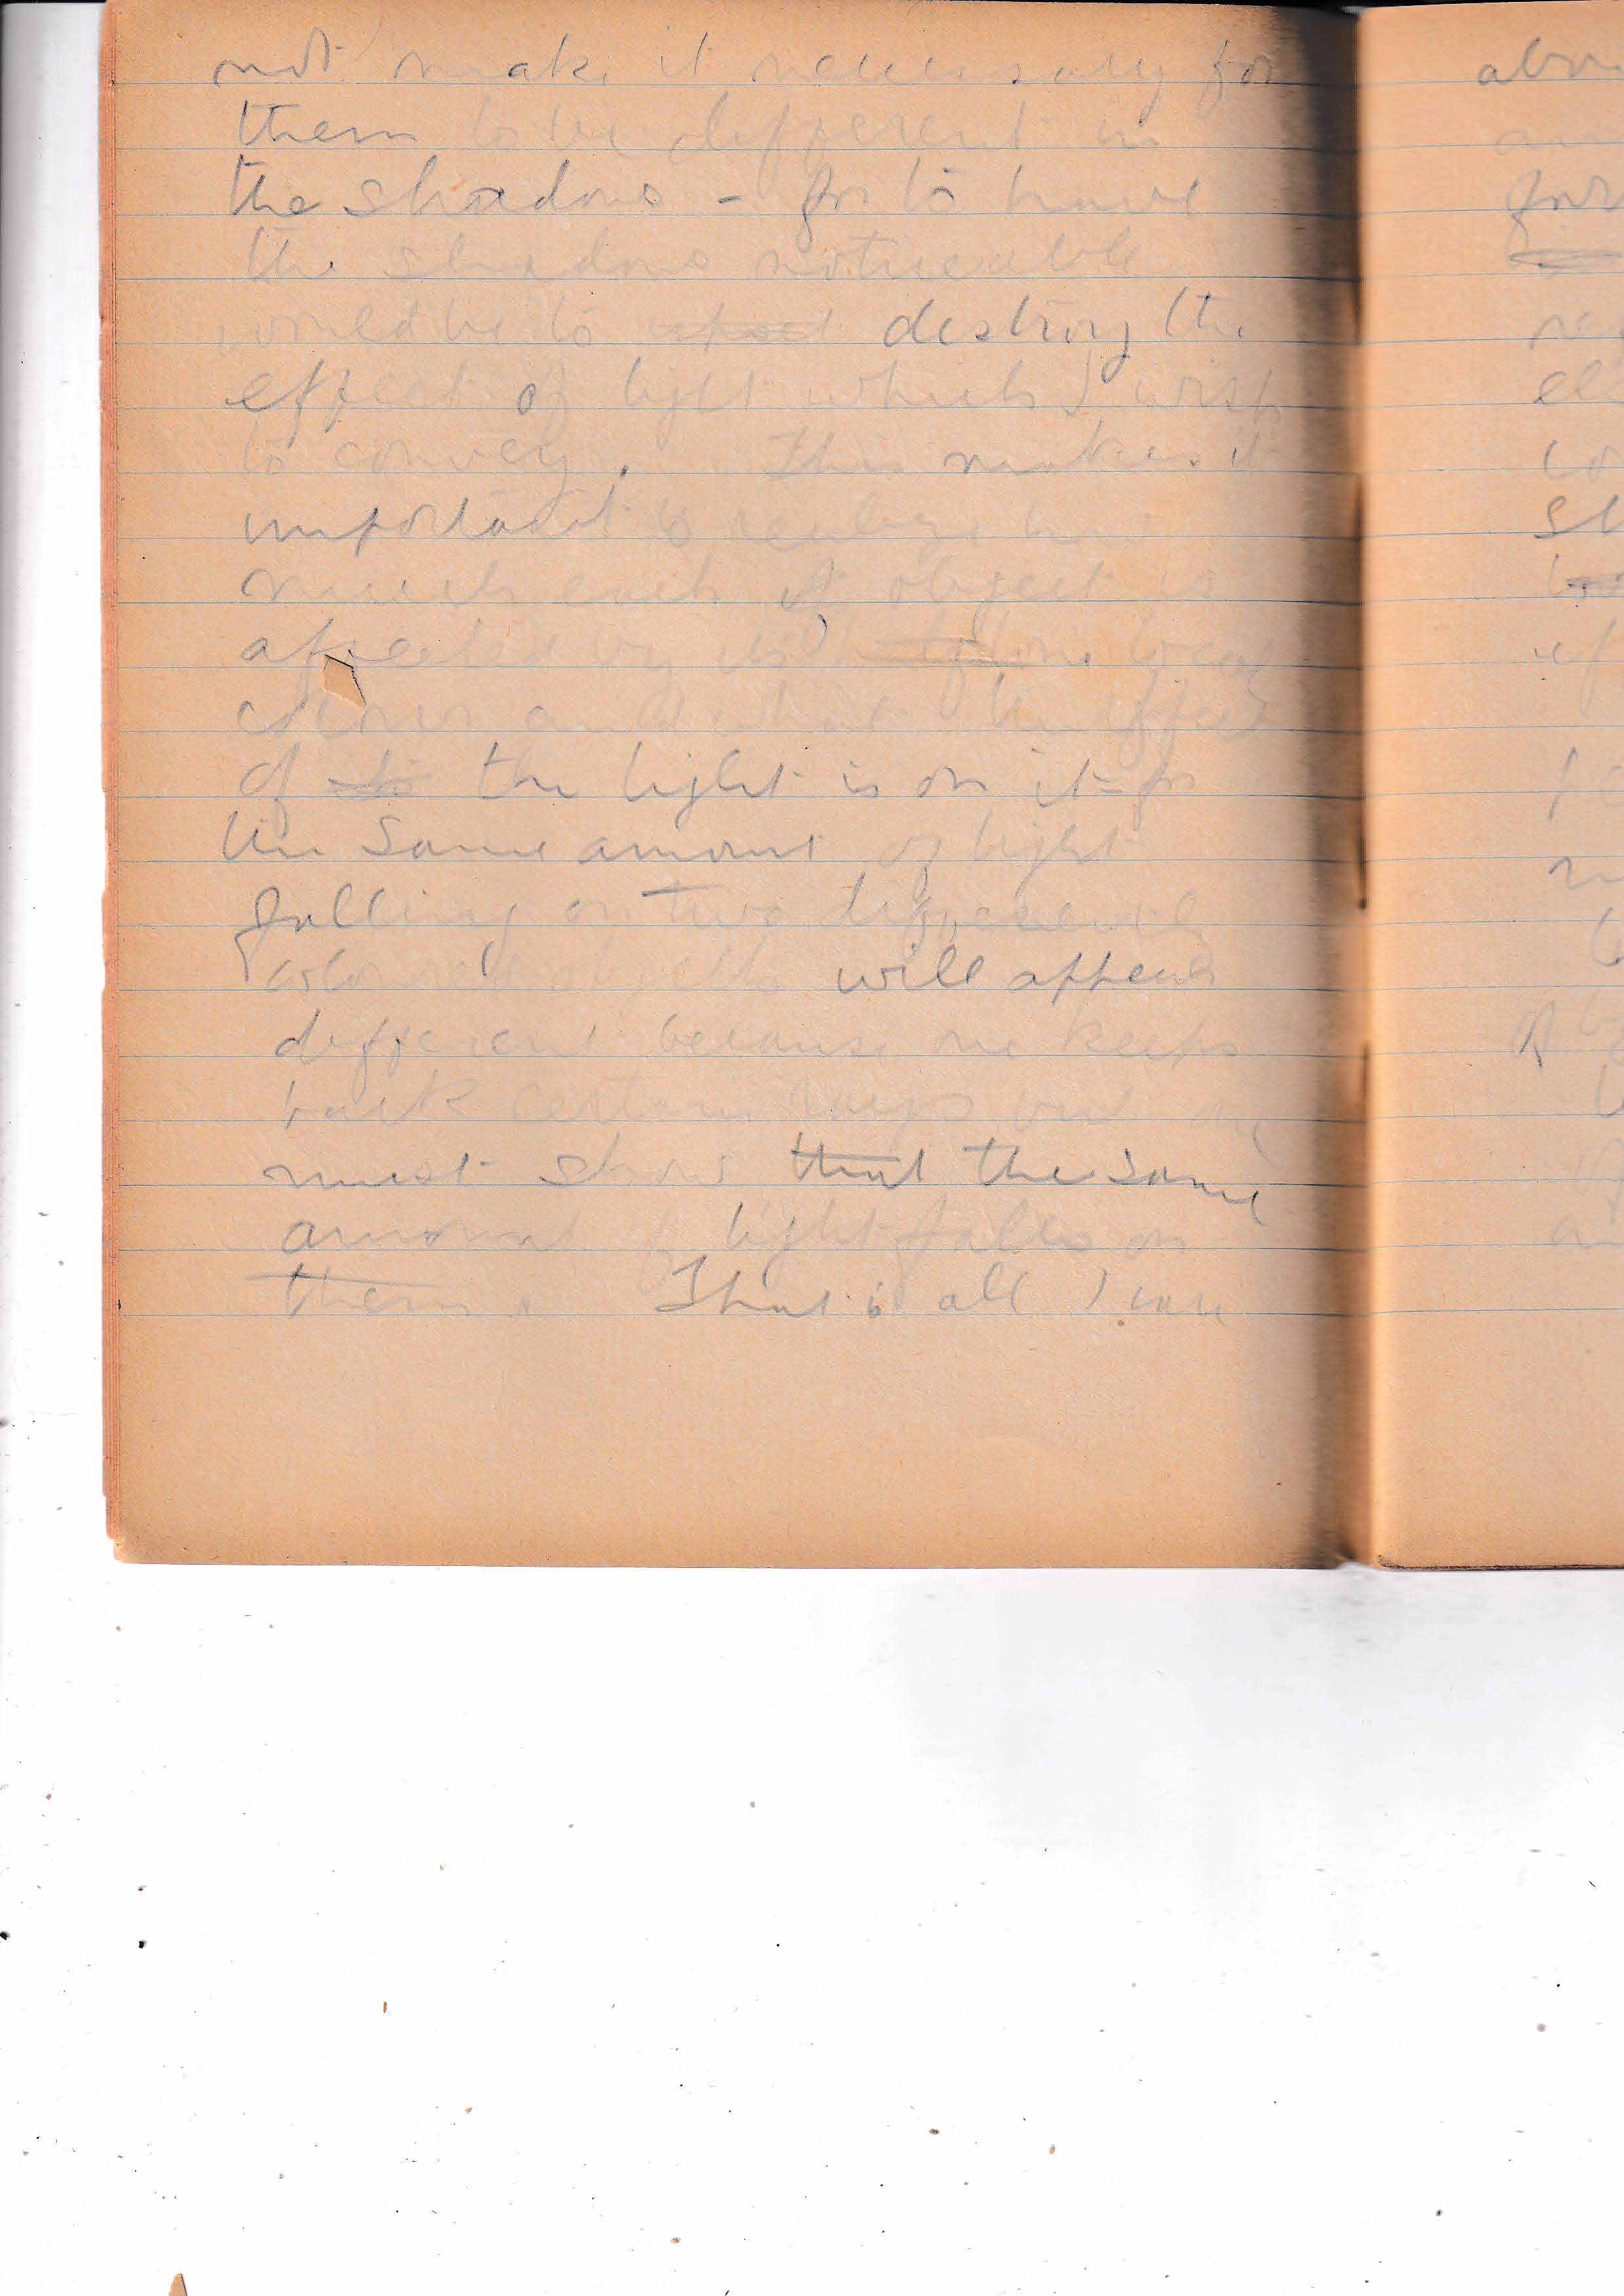 not make it necessary for
them to be different in
the shadows - for to have
the shadows noticeable
would be to destroy the
effect of light which I wish
to convey. This makes it
important to realize how
much each object is
affected by its local
colour and what the effect
of the light is on it - for
the same amount of light
falling on two differently
coloured objects will appear
different because one keeps
back certain rays but one
must show that the same
amount of light falls on
them. That is all I can